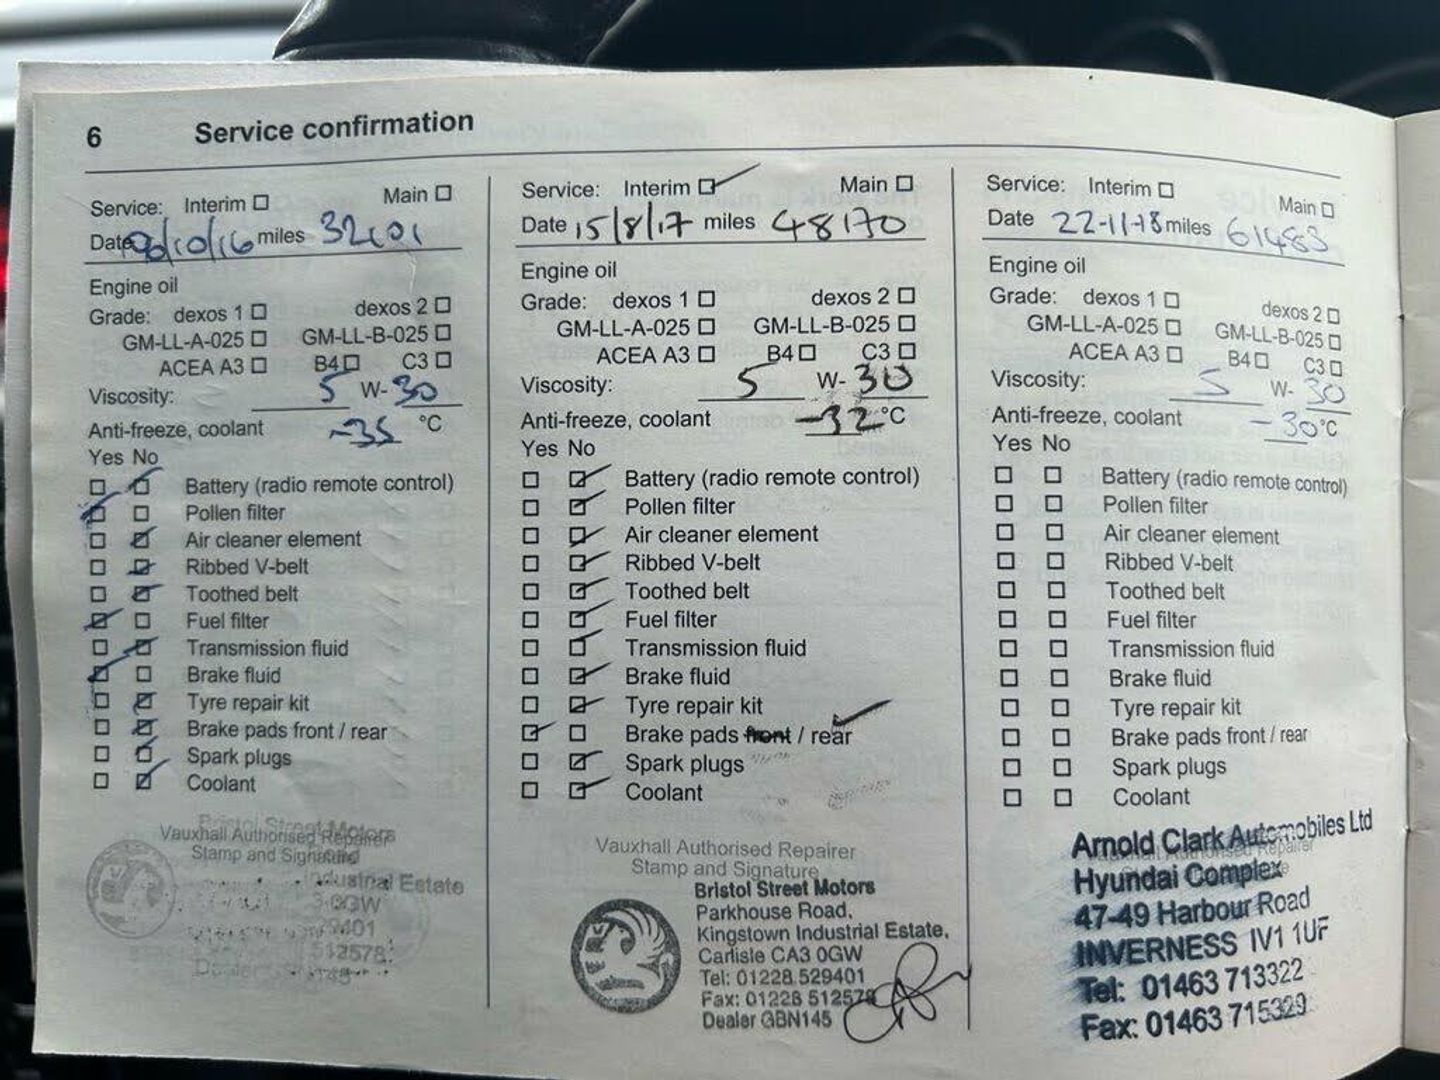 6 Service confirmation
Service: Interim Main
Date /10/16 miles 32101
Engine oil
Grade: dexos 1 dexos 2
GM-LL-A-025 GM-LL-B-025
ACEA A3 B4 C3
Viscosity: 5 W-30
Anti-freeze, coolant -35 °C
Yes No
Battery (radio remote control)
Pollen filter
Air cleaner element
Ribbed V-belt
Toothed belt
Fuel filter
Transmission fluid
Brake fluid
Tyre repair kit
Brake pads front / rear
Spark plugs
Coolant
Bristol Street Motors
Vauxhall Authorised Repairer
Stamp and Signature
Industrial Estate
3 0GW
9401
512578
Service: Interim Main
Date 15/8/17 miles 48170
Engine oil
Grade: dexos 1 dexos 2
GM-LL-A-025 GM-LL-B-025
ACEA A3 B4 C3
Viscosity: 5 W-30
Anti-freeze, coolant -32 °C
Yes No
Battery (radio remote control)
Pollen filter
Air cleaner element
Ribbed V-belt
Toothed belt
Fuel filter
Transmission fluid
Brake fluid
Tyre repair kit
Brake pads front / rear
Spark plugs
Coolant
Vauxhall Authorised Repairer
Stamp and Signature
Bristol Street Motors
Parkhouse Road,
Kingstown Industrial Estate,
Carlisle CA3 0GW
Tel: 01228 529401
Fax: 01228 512578
Dealer GBN145
Service: Interim Main
Date 22-11-18 miles 61483
Engine oil
Grade: dexos 1 dexos 2
GM-LL-A-025 GM-LL-B-025
ACEA A3 B4 C3
Viscosity: 5 W-30
Anti-freeze, coolant -30 °C
Yes No
Battery (radio remote control)
Pollen filter
Air cleaner element
Ribbed V-belt
Toothed belt
Fuel filter
Transmission fluid
Brake fluid
Tyre repair kit
Brake pads front / rear
Spark plugs
Coolant
Arnold Clark Automobiles Ltd
Hyundai Complex
47-49 Harbour Road
INVERNESS IV1 1UF
Tel: 01463 713322
Fax: 01463 715329